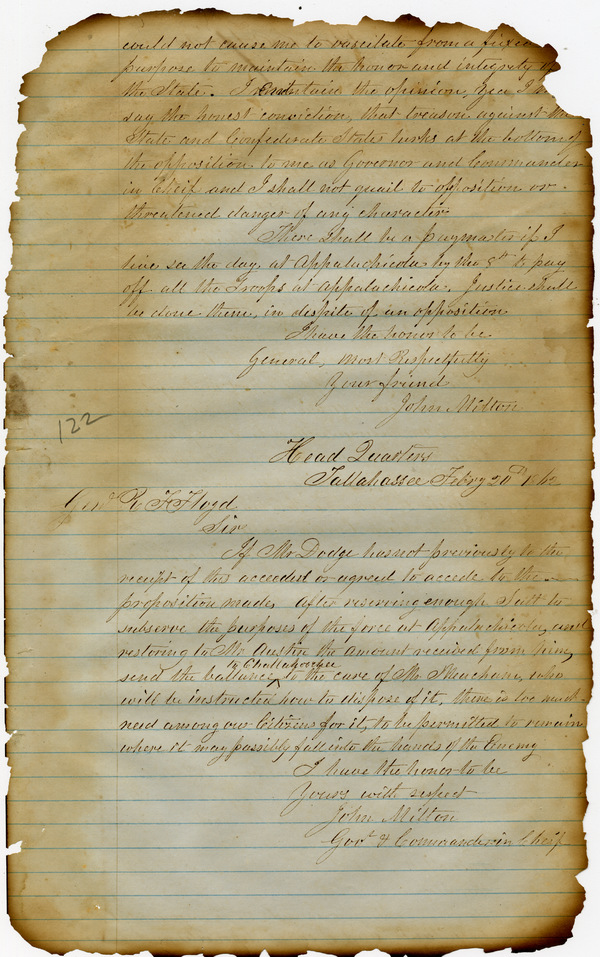 could not cause me to vascilate from a fixed
purpose to maintain the honor and integrity of
the State. I entertain the opinion, Yea I
say the honest conviction, that treason against the
State and Confederate States lurks at the bottom of
the opposition to me as Governor and Commander
in Chief and I shall not quail to opposition or
threatened danger of any character
There Shall be a paymaster if I
live see the day, at Appalachicola by the 5th to pay
off all the Troops at Appalachicola. Justice shall
be done them, in despite of an opposition
I have the honor to be
General, most Respectfully
Your friend
John Milton
122
Head Quarters
Tallahassee Febry 20th 1862
Genl R F Floyd
Sir
If Mr Dodge has not previously to the
receipt of this acceded or agreed to accede to the
proposition made, after reserving enough Salt to
subserve the purposes of the force at Appalachicola, and
restoring to Mr Austin the amount received from him,
to Chattahoochee
send the ballance to the care of Mr Meacham, who
will be instructed how to dispose of it, there is too much
need among our Citizens for it, to be permitted to remain
where it may possibly fall into the hands of the Enemy
I have the honor to be
Yours with respect
John Milton
Govr & Commander in Chief